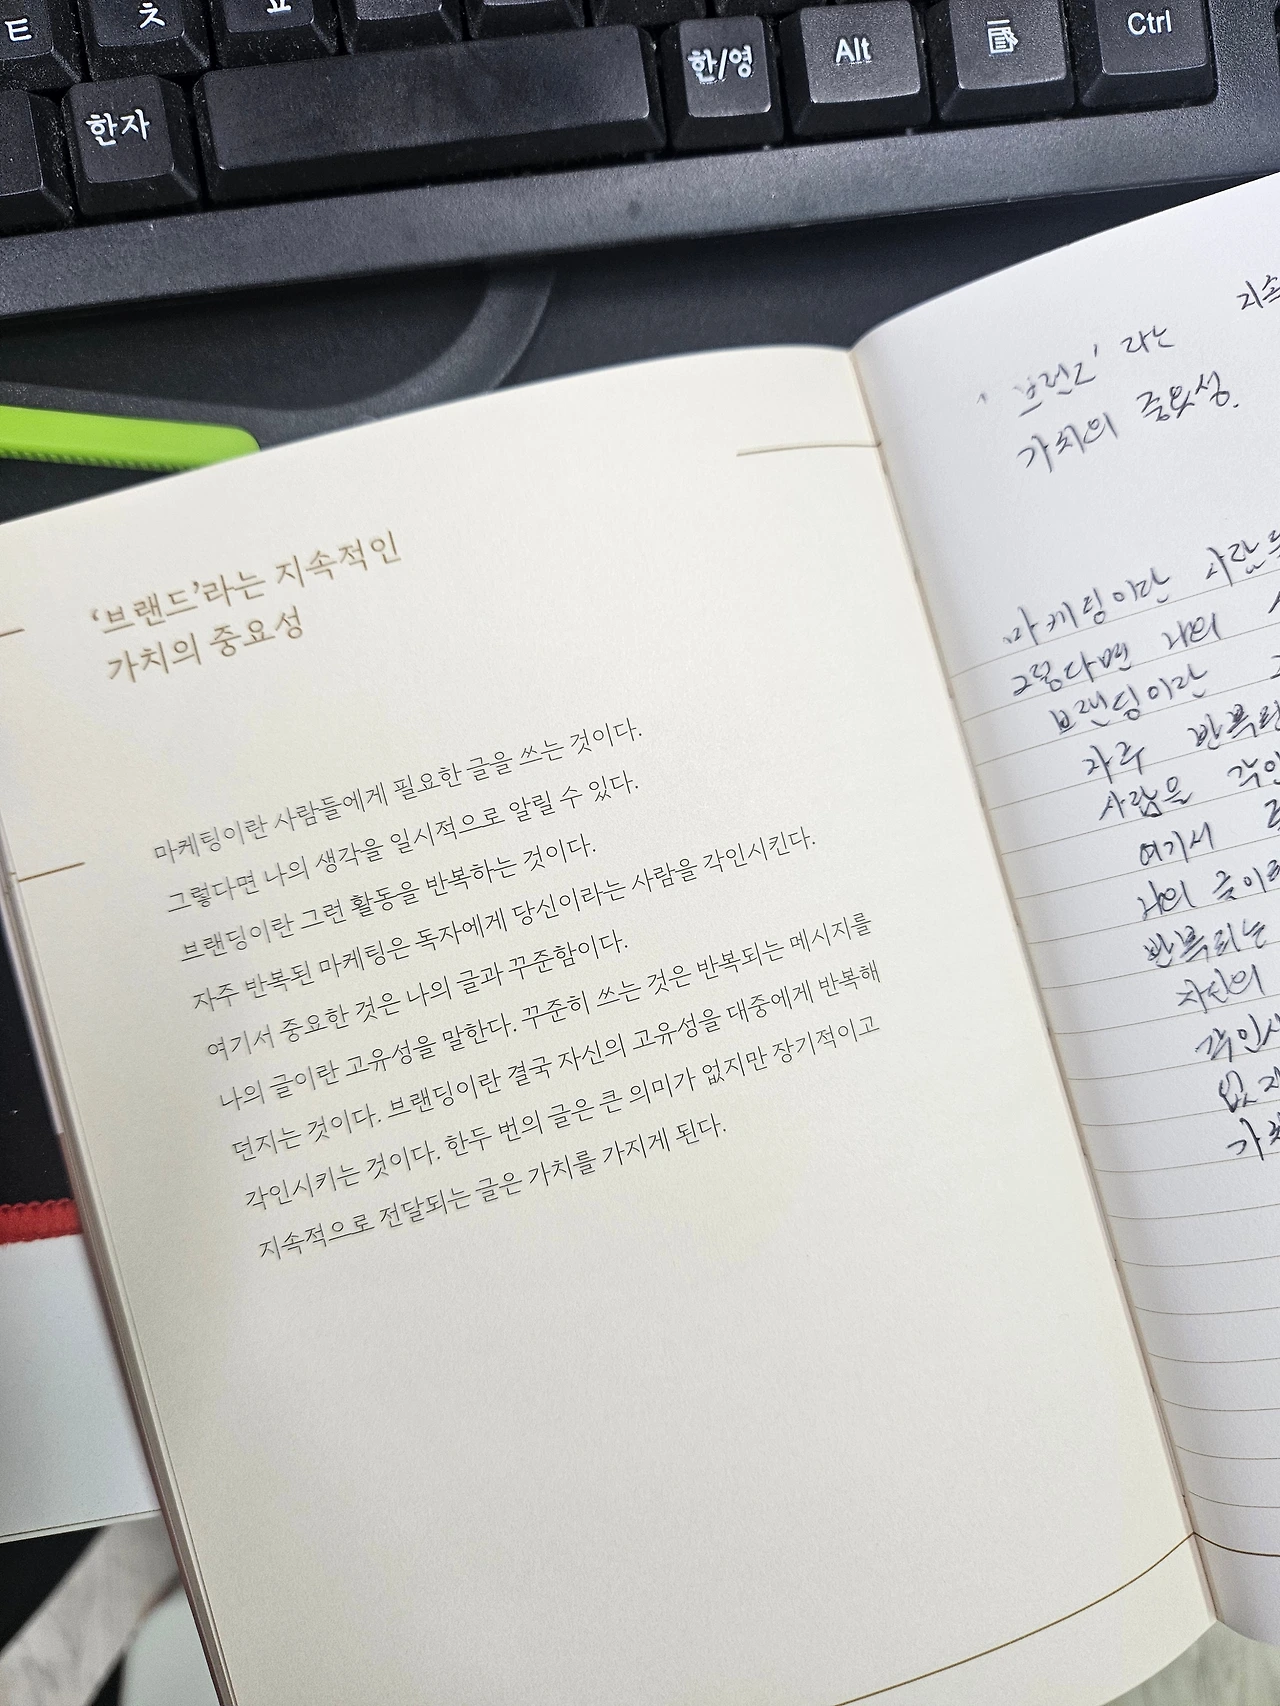 ㅌ ㅊ ㅍ
한자 한/영 Alt Ctrl
'브랜드'라는 지속적인
가치의 중요성
마케팅이란 사람들에게 필요한 글을 쓰는 것이다.
그렇다면 나의 생각을 일시적으로 알릴 수 있다.
브랜딩이란 그런 활동을 반복하는 것이다.
자주 반복된 마케팅은 독자에게 당신이라는 사람을 각인시킨다.
여기서 중요한 것은 나의 글과 꾸준함이다.
나의 글이란 고유성을 말한다. 꾸준히 쓰는 것은 반복되는 메시지를
던지는 것이다. 브랜딩이란 결국 자신의 고유성을 대중에게 반복해
각인시키는 것이다. 한두 번의 글은 큰 의미가 없지만 장기적이고
지속적으로 전달되는 글은 가치를 가지게 된다.
'브랜드' 라는 지속
가치의 중요성.
마케팅이란 사람들
그렇다면 나의
브랜딩이란
자주 반복된
사람을 각인
여기서
나의 글이란
반복되는
자신의
각인시
없지
가치